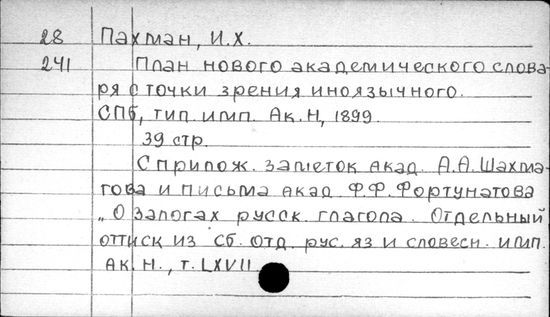 28 Пахман, И.Х.
241 План нового академического слова-
ря с точки зрения иноязычного.
СПб, тип. имп. Ак. Н, 1899.
39 стр.
С прилож. заметок акад. А.А. Шахма-
това и письма акад. Ф.Ф. Фортунатова
„О залогах русск. глагола. Отдельный
оттиск из Сб. отд. рус. яз и словесн. имп.
Ак. Н., т. LXVII